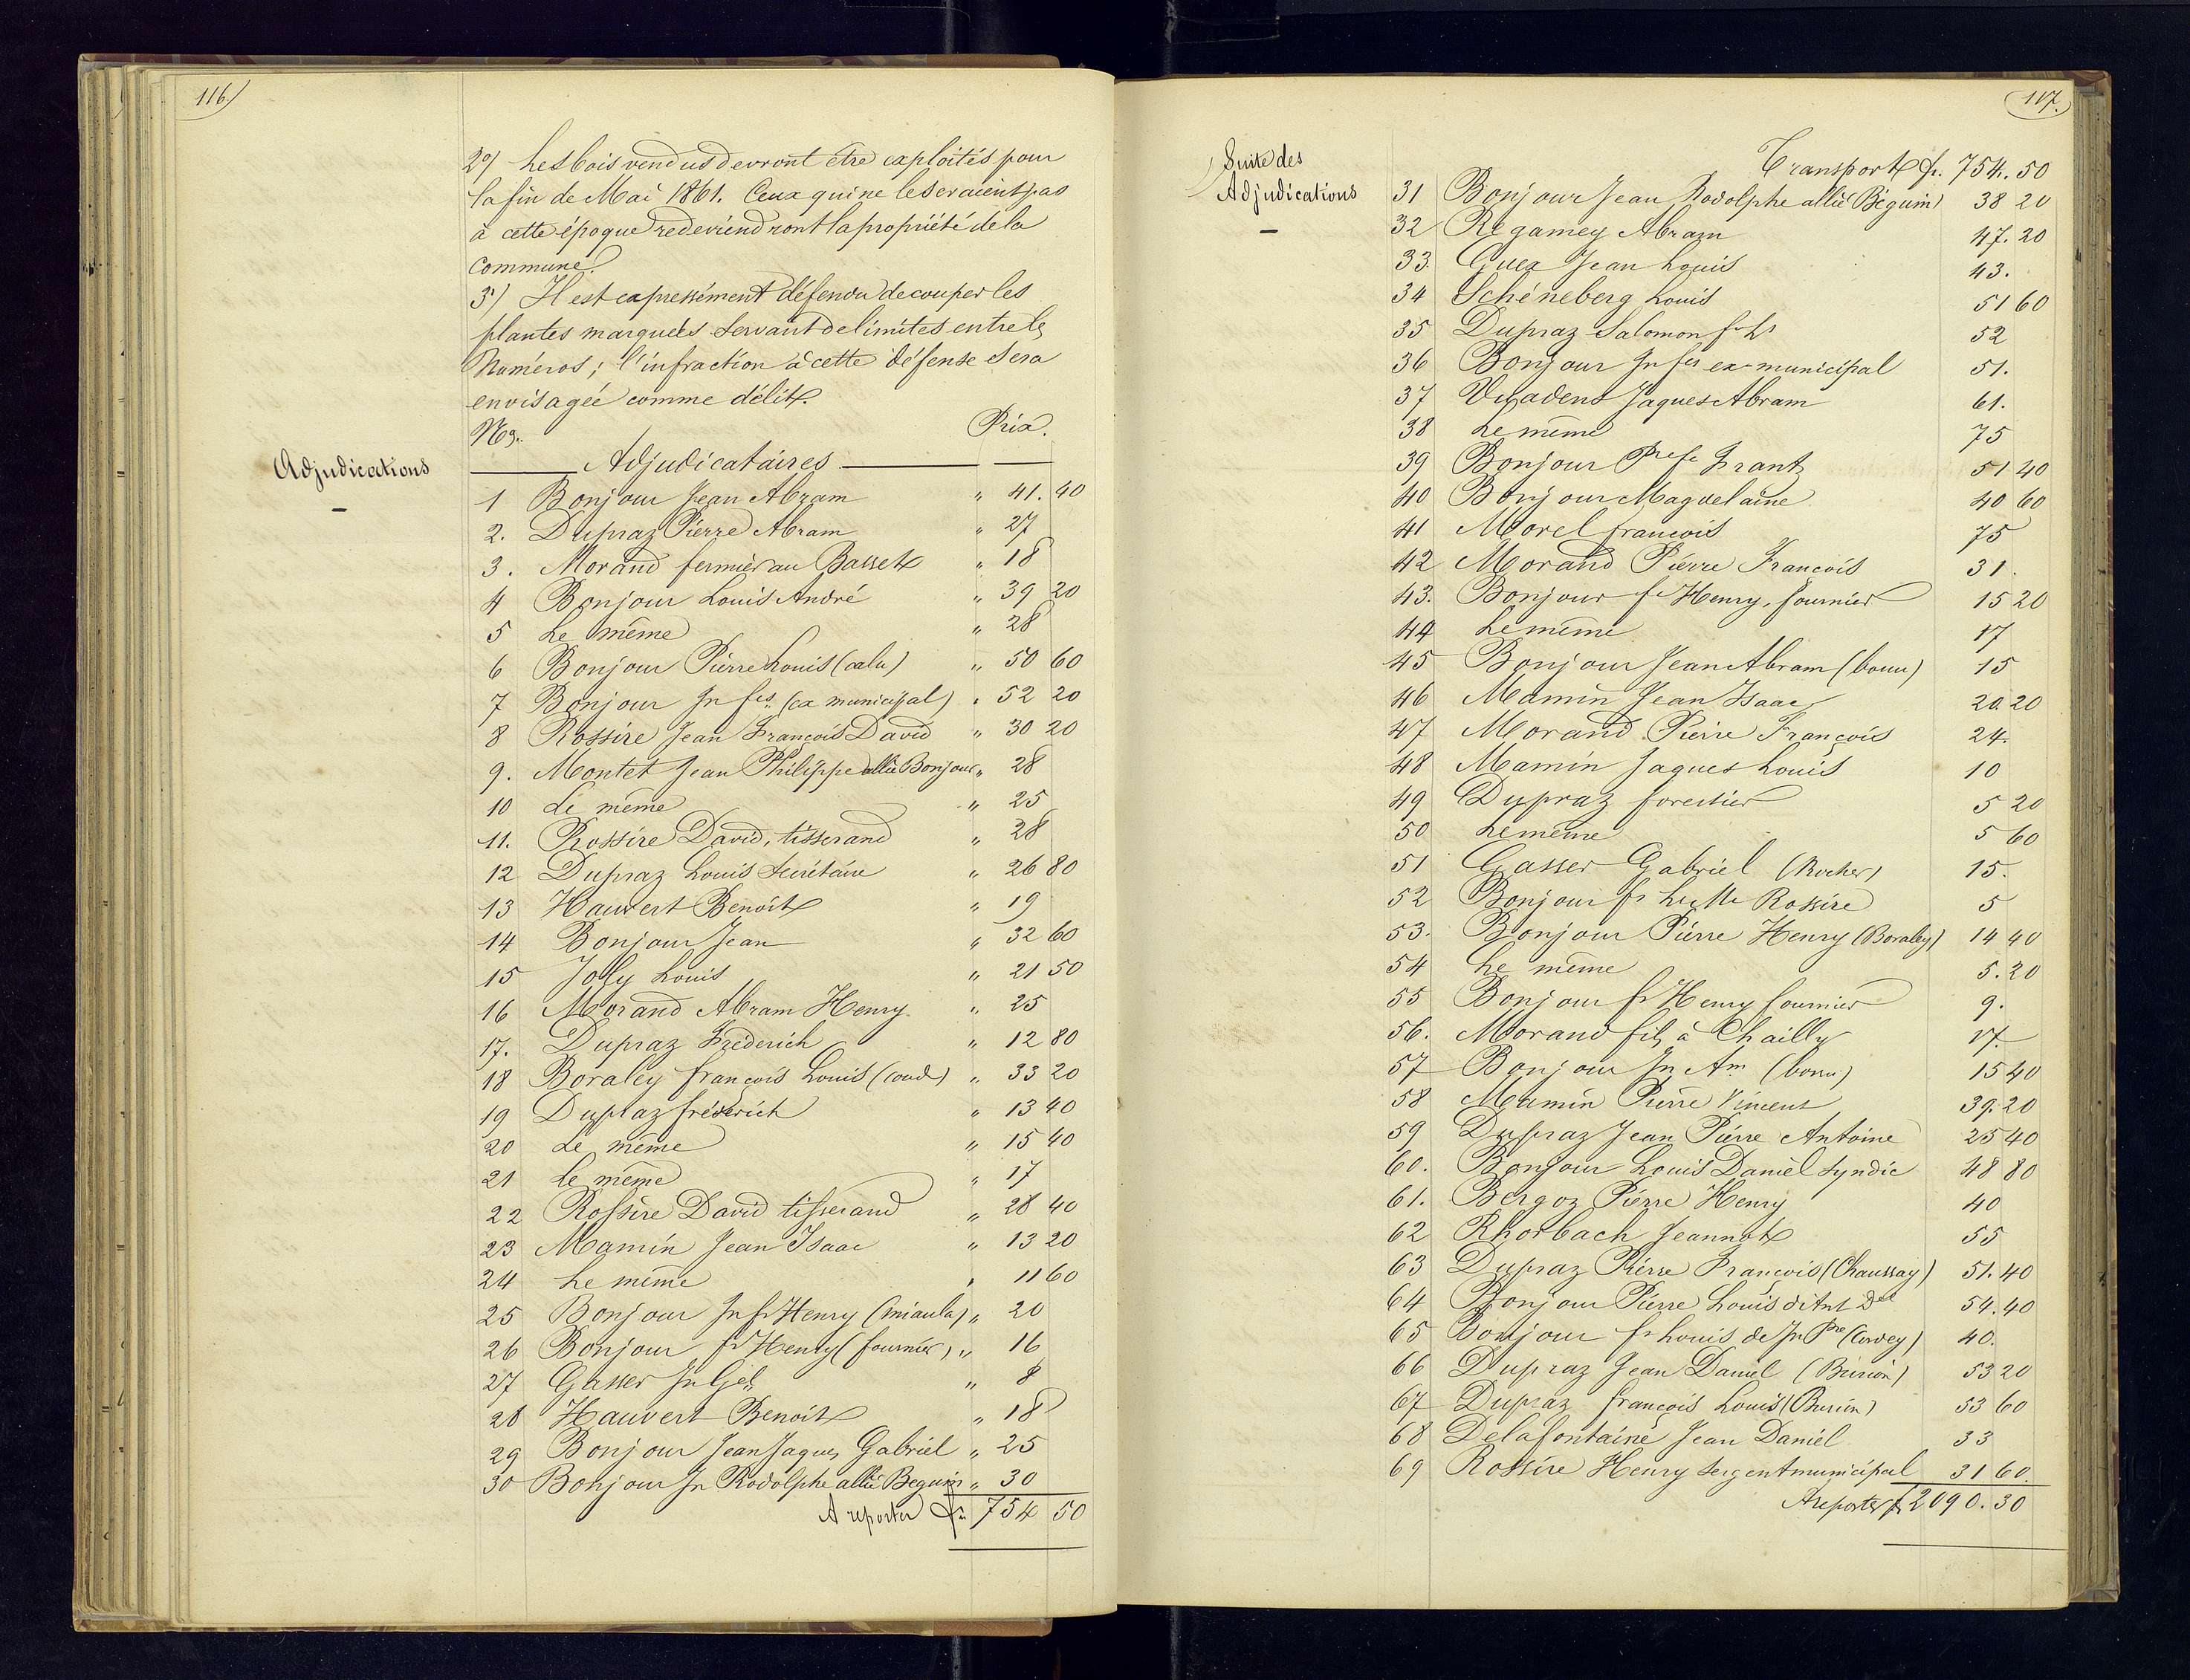 116/
2°/ Les bois vendus devront être exploités pour
la fin de Mai 1861. Ceux qui ne le seraient pas
à cette époque redeviendront la propriété de la
commune.
3°) Il est expressément défendu de couper les
plantes marquées servant de limites entre les
Numéros; l'infraction à cette défense sera
envisagée comme délit.
Nos. Prix.
Adjudications
Adjudicataires
1 Bonjour Jean Abram " 41. 40
2. Dupraz Pierre Abram " 27
3. Morand fermier au Basset " 18
4 Bonjour Louis André " 39 20
5 Le même " 28
6 Bonjour Pierre Louis (calu) " 50 60
7 Bonjour Jn fçs (ex municipal) " 52 20
8 Rossire Jean François David " 30 20
9. Montet Jean Philippe allié Bonjour " 28
10 Le même " 25
11. Rossire David, tisserand " 28
12 Dupraz Louis Secrétaire " 26 80
13 Hauvert Benoit " 19
14 Bonjour Jean " 32 60
15 Joly Louis " 21 50
16 Morand Abram Henry " 25
17. Dupraz Fréderich " 12 80
18 Boraley françois Louis " 33 20
19 Dupraz fréderich " 13 40
20 Le même " 15 40
21 le même " 17
22 Rossire David tisserand " 28 40
23 Mamin Jean Isaac " 13 20
24 Le même " 11 60
25 Bonjour Jn fs Henry (miaula) " 20
26 Bonjour fs Henry (fournier) " 16
27 Gasser Jn Gel " 8
28 Hauvert Benoit " 18
29 Bonjour Jean Jaques Gabriel " 25
30 Bonjour Jn Rodolphe allié Beguin " 30
A reporter fr. 754 50
117.
Suite des
Adjudications
Transport fr. 754. 50
31 Bonjour Jean Rodolphe allié Béguin 38 20
32 Regamey Abram 47. 20
33. Guex Jean Louis 43.
34 Schéneberg Louis 51 60
35 Dupraz Salomon 52
36 Bonjour Jn fçs ex-municipal 51.
37 Vuadens Jaques Abram 61.
38 Le même 75
39 Bonjour Frantz 51 40
40 Bonjour Maguelaine 40 60
41 Morel francois 75
42 Morand Pierre François 31.
43. Bonjour fs Henry, fournier 15 20
44 Le même 17
45 Bonjour Jean Abram (bonu) 15
46 Mamin Jean Isaac 20. 20
47 Morand Pierre François 24.
48 Mamin Jaques Louis 10
49 Dupraz forestier 5 20
50 Le même 5 60
51 Gasser Gabriel (Rocher) 15.
52 Bonjour fs Rossire 5
53. Bonjour Pierre Henry (Boraley) 14 40
54 Le même 5. 20
55 Bonjour fs Henry fournier 9.
56. Morand fils à Chailly 17.
57 Bonjour Jn Am (bonu) 15 40
58 Mamin Pierre Vincent 39. 20
59 Dupraz Jean Pierre Antoine 25 40
60. Bonjour Louis Daniel syndic 48 80
61. Bergoz Pierre Henry 40
62 Rhorbach Jeannot 55
63 Dupraz Pierre Francois (Chaussay) 51. 40
64 Bonjour Pierre Louis 54. 40
65 Bonjour fs Louis de Jn Pre (Corvey) 40.
66 Dupraz Jean Daniel (Burion) 53 20
67 Dupraz françois Louis (Burion) 53 60
68 Delafontaine Jean Daniel 33
69 Rossire Henry sergent municipal 31 60.
A reporter fr 2090. 30